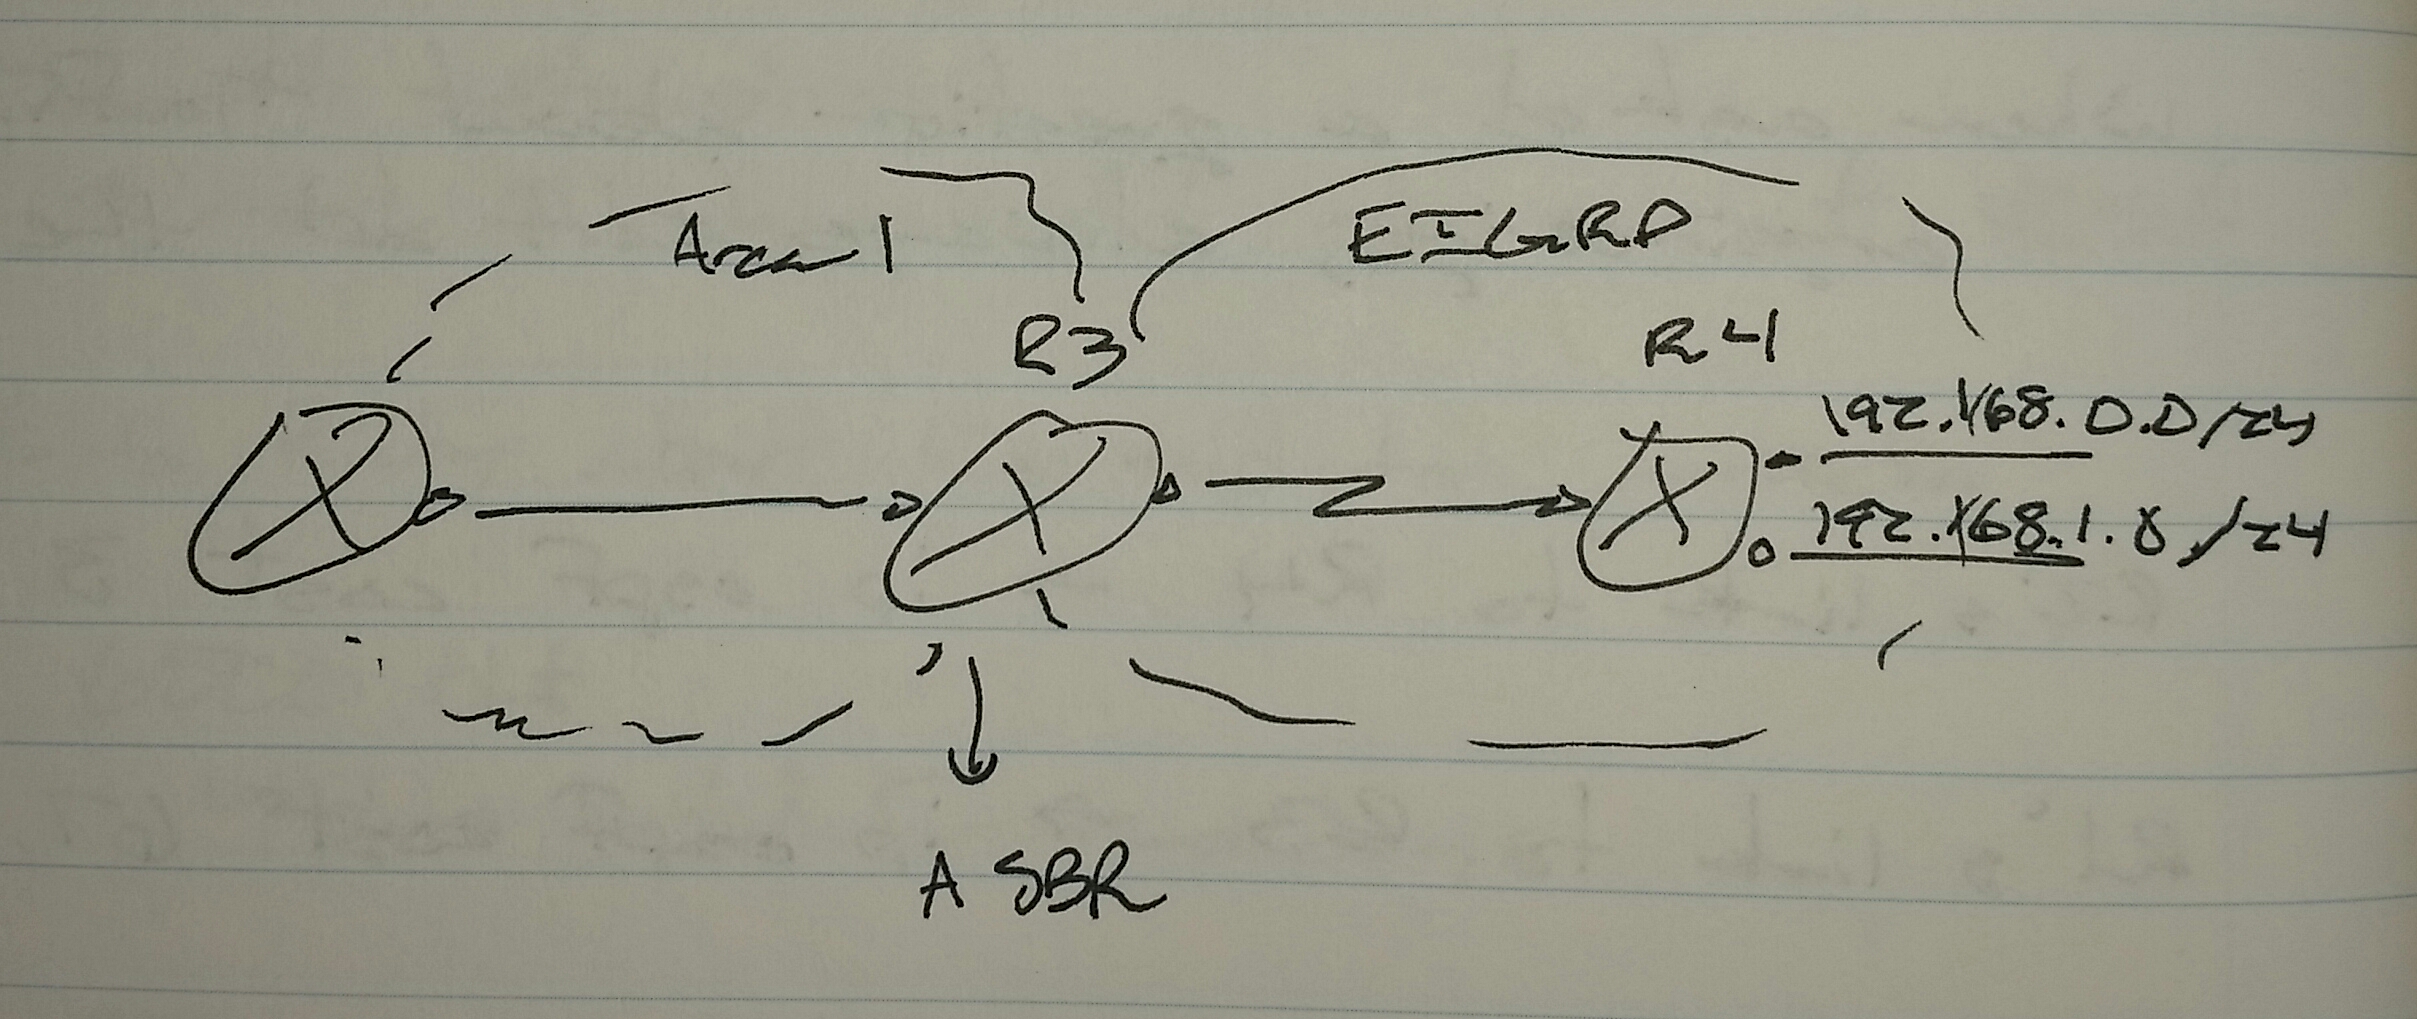 Area 1
EIGRP
R3
R4
192.168.0.0/24
192.168.1.0/24
ASBR